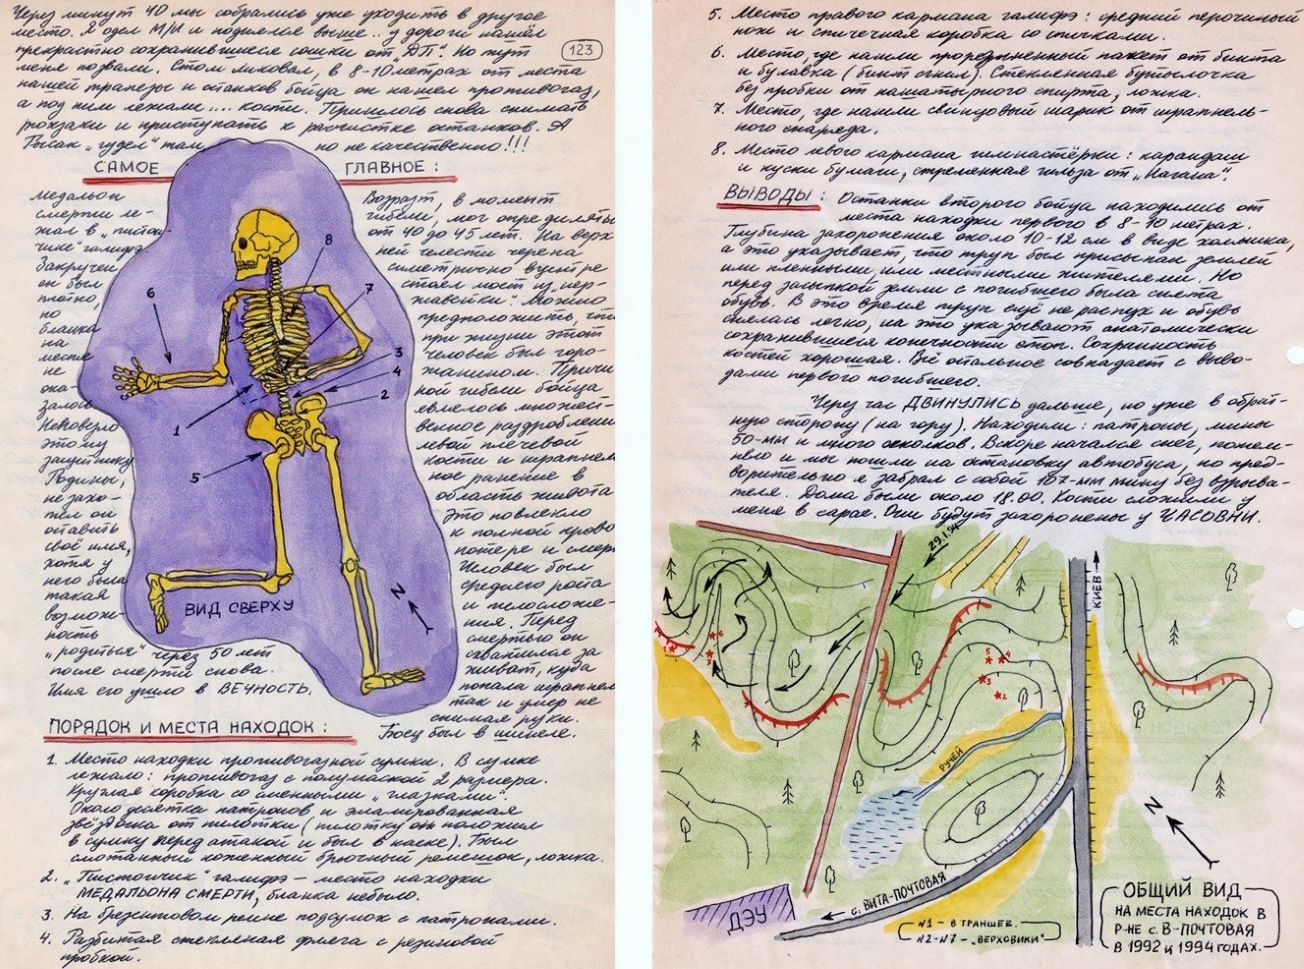 Через минут 40 мы собрались уже уходить в другое
место. Я одел М/И и поднялся выше.. у дороги нашёл
прекрастно сохранившиеся сошки от „ДП". Но тут
123
меня позвали. Стом ликовал, в 8-10 метрах от места
нашей трапезы и останков бойца он нашёл противогаз,
а под ним лежали.... кости. Пришлось снова снимать
рюкзаки и приступать к расчистке останков. А
Тысак „гудел" там, но не качественно!!!
САМОЕ ГЛАВНОЕ:
Медальон
смерти ле-
жал в „пистон-
чике" галифэ.
Закручен
он был
плотно,
но
бланка
на
месте
не
ока-
залось.
Неповерил
этому
защитнику
Родины,
не захо-
тел он
оставить
своё имя,
хотя у
него была
такая
возмож-
ность
„родиться" через 50 лет
после смерти снова.
Имя его ушло в ВЕЧНОСТЬ.
Возраст, в момент
гибели, мог определять
от 40 до 45 лет. На верх
ней челюсти черепа
симетрично внутри
стоял мост из „нер-
жавейки". Можно
предположить, что
при жизни этот
человек был горо-
жанином. Причи
ной гибели бойца
явилось множест-
венное раздробление
левой плечевой
кости и шрапнель
ное ранение в
область живота
Это повлекло
к полной крово
потере и смерти
Человек был
среднего роста
и телосложе-
ния. Перед
смертью он
схватился за
живот, куда
попала шрапнель
так и умер не
снимая руки.
Боец был в шинеле.
8
7
6
3
4
2
1
5
ВИД СВЕРХУ
N
ПОРЯДОК И МЕСТА НАХОДОК:
1. Место находки противогазной сумки. В сумке
лежало: противогаз с полумаской 2 размера.
Круглая коробка со сменными „глазками".
Около десятка патронов и эмалированная
звёздочка от пилотки (пилотку он положил
в сумку перед атакой и был в каске). Был
смотанный кожаный брючный ремешок, ложка.
2. „Пистончик" галифэ - место находки
МЕДАЛЬОНА СМЕРТИ, бланка небыло.
3. На брезентовом ремне подсумок с патронами.
4. Разбитая стекляная фляга с резиновой
пробкой.
5. Место правого кармана галифэ: средний перочиный
нож и спичечная коробка со спичками.
6. Место, где нашли прорезиненный пакет от бинта
и булавка (бинт сгнил). Стеклянная бутылочка
без пробки от нашатырного спирта, ложка.
7. Место, где нашли свинцовый шарик от шрапнель-
ного снаряда.
8. Место левого кармана гимнастёрки: карандаш
и куски бумаги, стреленная гильза от „Нагана".
ВЫВОДЫ: Останки второго бойца находились от
места находки первого в 8-10 метрах.
Глубина захоронения около 10-12 см в виде холмика,
а это указывает, что труп был присыпан землёй
или пленными, или местными жителями. Но
перед засыпкой земли с погибшего была снята
обувь. В это время труп ещё не распух и обувь
снялась легко, на это указывают анатомически
сохранившиеся конечности стоп. Сохранность
костей хорошая. Всё остальное совпадает с выво-
дами первого погибшего.
Через час ДВИНУЛИСЬ дальше, но уже в обрат-
ную сторону (на гору). Находили: патроны, мины
50-мм и много осколков. Вскоре начался снег, потем-
нело и мы пошли на остановку автобуса, но пред-
ворительно я забрал с собой 107-мм мину без взрыва-
теля. Дома были около 18.00. Кости сложили у
меня в сарае. Они будут захоронены у ЧАСОВНИ.
29.1.94
КИЕВ
1
6
7
5
4
3
2
РУЧЕЙ
N
с. ВИТА-ПОЧТОВАЯ
ДЭУ
N1 - В ТРАНШЕЕ.
N2-N7 - „ВЕРХОВИКИ"
ОБЩИЙ ВИД
НА МЕСТА НАХОДОК В
Р-НЕ с. В-ПОЧТОВАЯ
В 1992 и 1994 ГОДАХ.